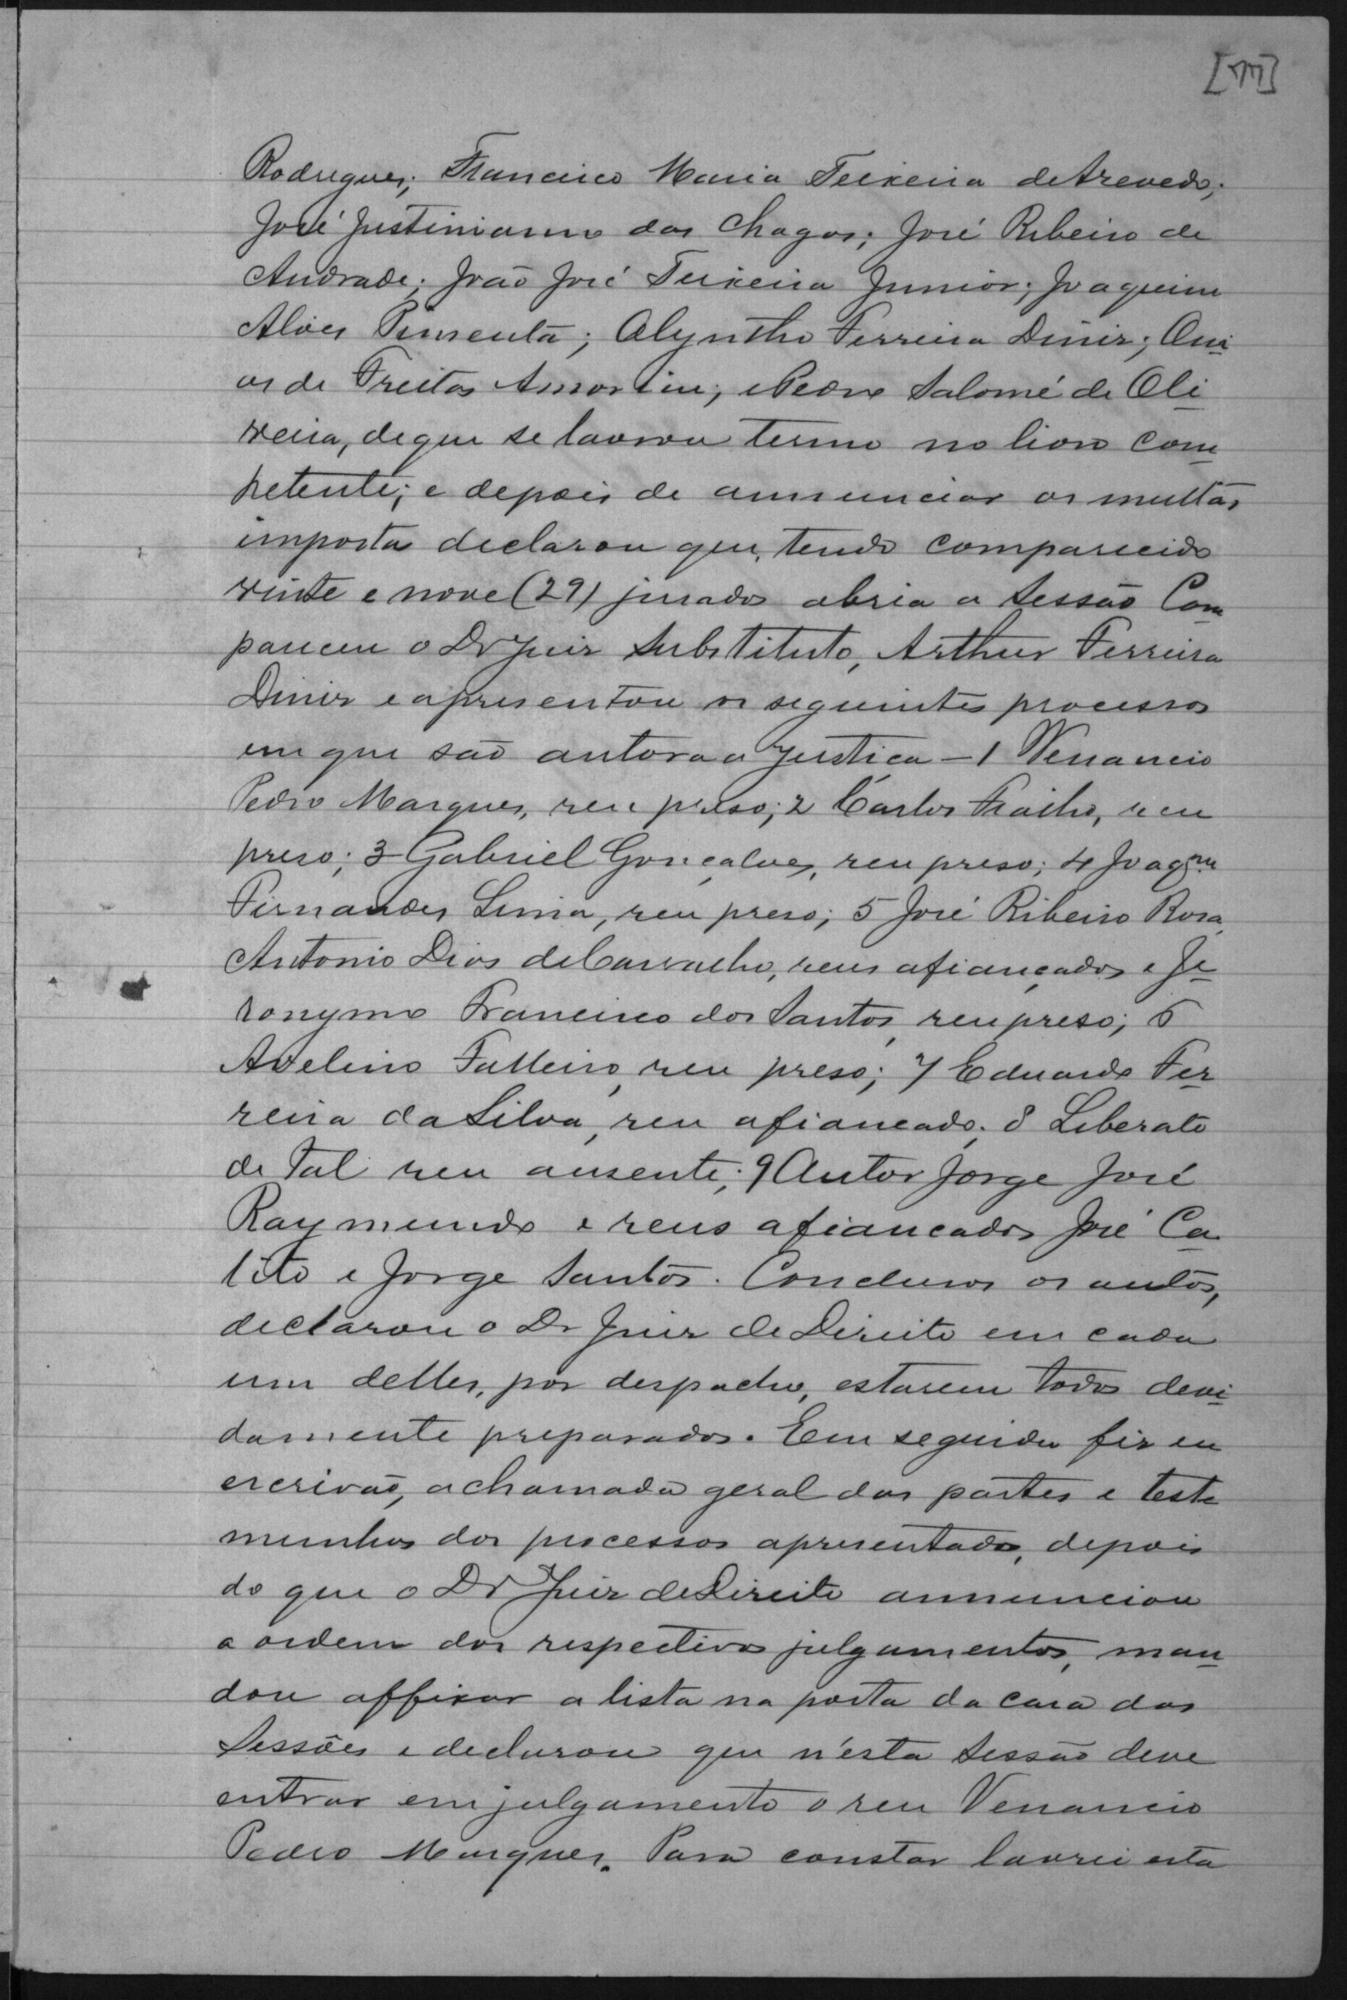 [77]
Rodrigues; Francisco Maria Teixeira de Azevedo;
José Justinianno das Chagas; José Ribeiro de
Andrade; João José Teixeira Junior; Joaquim
Alves Pimenta; Olyntho Ferreira Diniz;
de Freitas Amorim; e Pedro Salomé de Oli-
veira, de que se lavrou termo no livro com-
petente; e depois de annunciar as multas
imposta declarou que, tendo comparecido
vinte e nove (29) jurados abria a sessão Com-
pareceu o Dr Juiz Substituto, Arthur Ferreira
Diniz e apresentou os seguintes processos
em que são autora a Justiça - 1 Venancio
Pedro Marques, reu preso; 2 Carlos Fialho, reu
preso; 3 Gabriel Gonçalves, reu preso; 4 Joaqm
Fernandes Lima, reu preso; 5 José Ribeiro Rosa,
Antonio Dias de Carvalho, reus afiançados e Je-
ronymo Francisco dos Santos, reu preso; 6
Avelino Falleiro, reu preso; 7 Eduardo Fer-
reira da Silva, reu afiancado; 8 Liberato
de Tal reu ausente; 9 Autor Jorge José
Raymundo e reus afiancados José Ca-
lito e Jorge Santos. Conclusos os autos,
declarou o Dr Juiz de Direito em cada
um delles, por despacho, estarem todos devi-
damente preparados. Em seguida fiz eu
escrivão, a chamada geral das partes e teste
munhas dos processos apresentados, depois
do que o Dr Juiz de Direito annunciou
a ordem dos respectivos julgamentos, man-
dou affixar a lista na porta da casa das
Sessões e declarou que n'esta sessão deve
entrar em julgamento o reu Venancio
Pedro Marques. Para constar lavrei esta